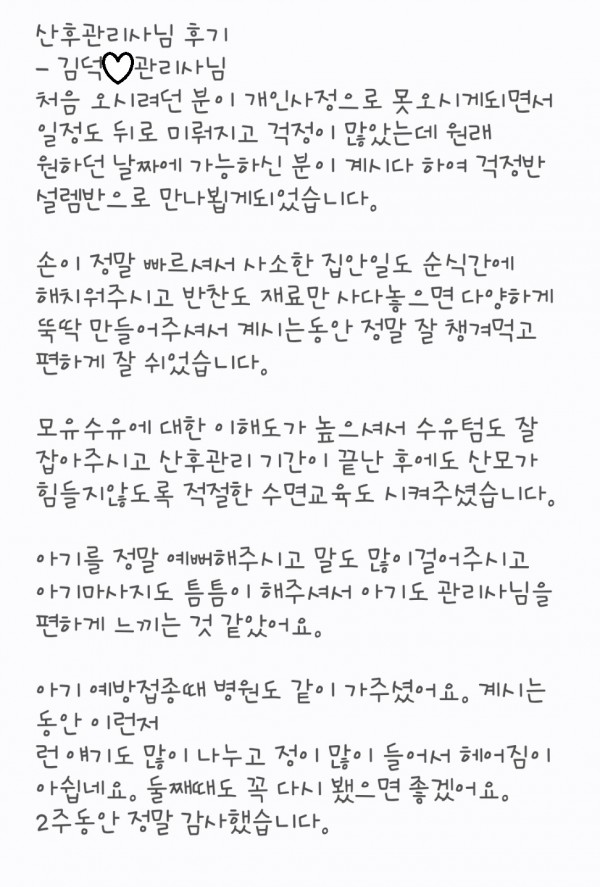 산후관리사님 후기
- 김덕♡관리사님
처음 오시려던 분이 개인사정으로 못오시게되면서
일정도 뒤로 미뤄지고 걱정이 많았는데 원래
원하던 날짜에 가능하신 분이 계시다 하여 걱정반
설렘반으로 만나뵙게되었습니다.
손이 정말 빠르셔서 사소한 집안일도 순식간에
해치워주시고 반찬도 재료만 사다놓으면 다양하게
뚝딱 만들어주셔서 계시는동안 정말 잘 챙겨먹고
편하게 잘 쉬었습니다.
모유수유에 대한 이해도가 높으셔서 수유텀도 잘
잡아주시고 산후관리 기간이 끝난 후에도 산모가
힘들지않도록 적절한 수면교육도 시켜주셨습니다.
아기를 정말 예뻐해주시고 말도 많이걸어주시고
아기마사지도 틈틈이 해주셔서 아기도 관리사님을
편하게 느끼는 것 같았어요.
아기 예방접종때 병원도 같이 가주셨어요. 계시는
동안 이런저
런 얘기도 많이 나누고 정이 많이 들어서 헤어짐이
아쉽네요. 둘째때도 꼭 다시 뵀으면 좋겠어요.
2주동안 정말 감사했습니다.